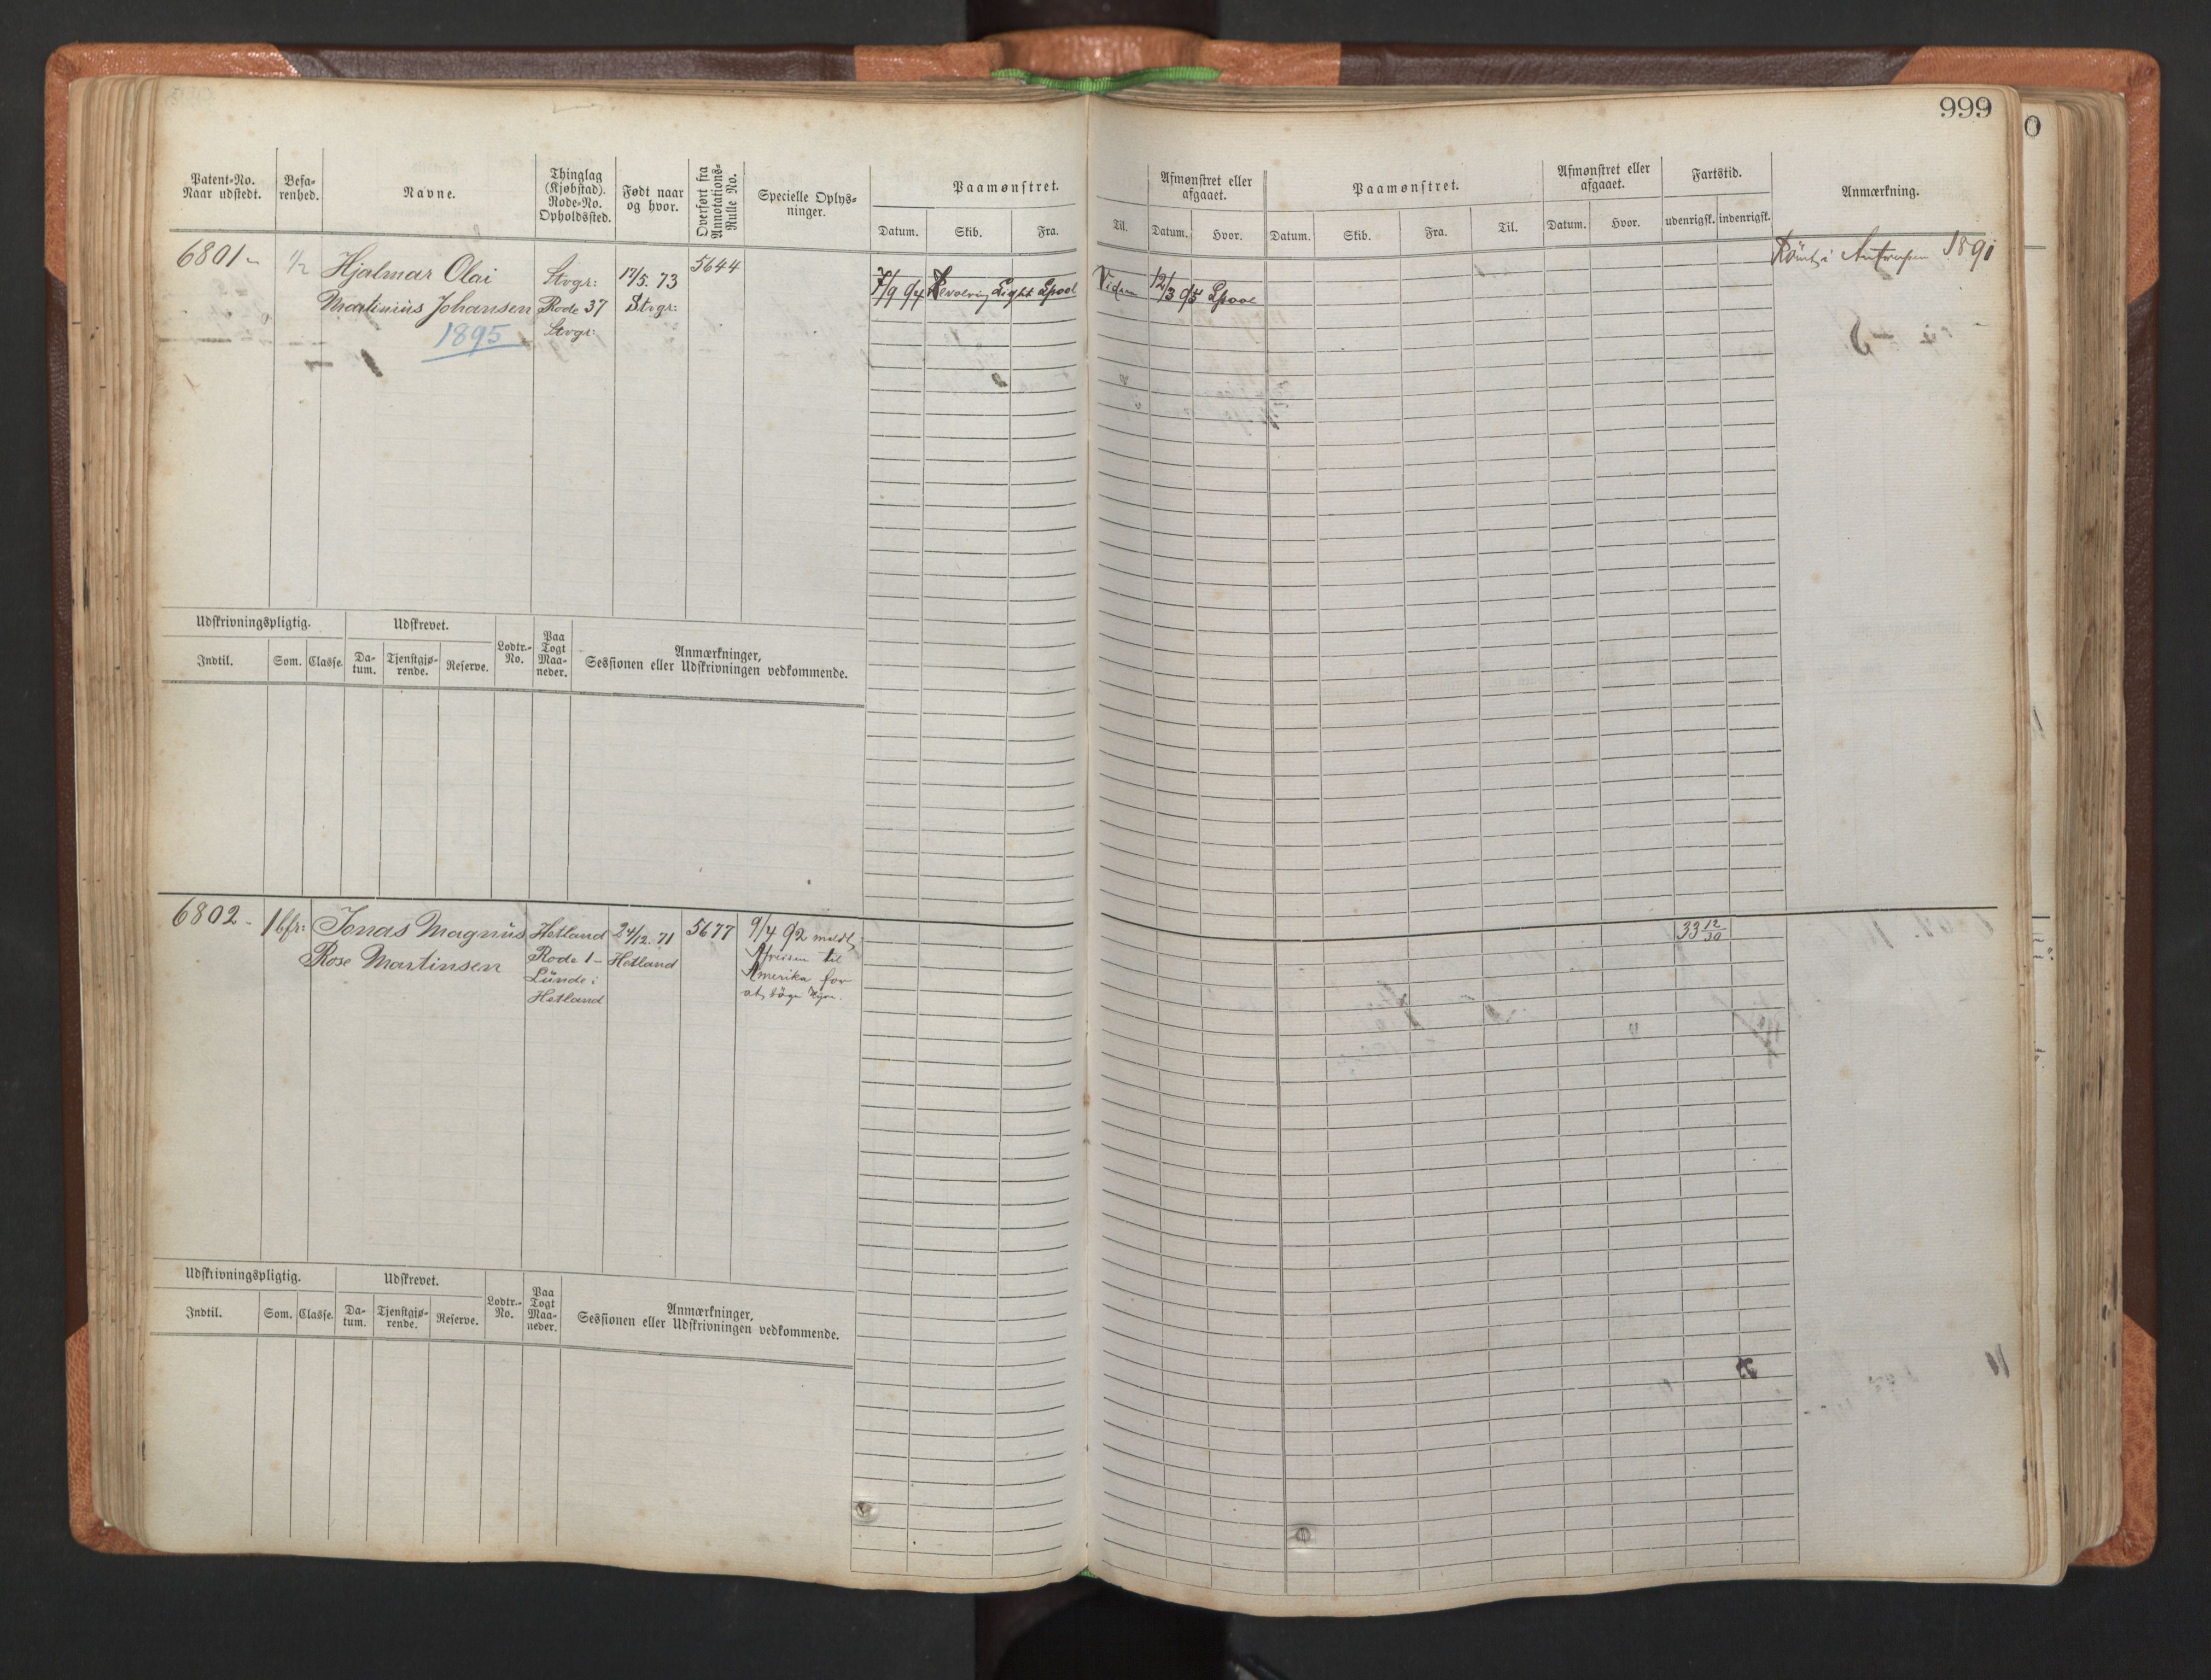 999
Patent-No.
Naar udstedt.
Befa-
renhed.
Navne.
Thinglag
(Kjøbstad).
Rode-No.
Opholdssted.
Født naar
og hvor.
Overført fra
Annotations-
Rulle No.
Specielle Oplys-
ninger.
Paamønstret.
Datum. Skib. Fra.
Til.
Afmønstret eller
afgaaet.
Datum. Hvor.
Paamønstret.
Datum. Skib. Fra. Til.
Afmønstret eller
afgaaet.
Datum. Hvor.
Fartstid.
udenrigsk. indenrigsk.
Anmærkning.
6801 1/2 Hjalmar Olai
Martinius Johansen
1895
Stvgr:
Rode 37
Stvgr:
17/5. 73
Stvgr:
5644
7/9 94 Revolving Light Lpool
12/3 95 Lpool
Rømt i Antwerpen 1891
Udskrivningspligtig.
Indtil. Som. Classe.
Udskrevet.
Da-
tum.
Tjenstgjø-
rende.
Reserve.
Lodtr.-
No.
Paa
Togt
Maa-
neder.
Anmærkninger,
Sessionen eller Udskrivningen vedkommende.
6802 - 1 bfr: Jonas Magnus
Rose Martinsen
Hetland
Rode 1 -
Lunde i
Hetland
24/12. 71
Hetland
5677
9/4 92 meldt
Afreisen til
Amerika for
at søge Hyre.
33 12/30
Udskrivningspligtig.
Indtil. Som. Classe.
Udskrevet.
Da-
tum.
Tjenstgjø-
rende.
Reserve.
Lodtr.-
No.
Paa
Togt
Maa-
neder.
Anmærkninger,
Sessionen eller Udskrivningen vedkommende.